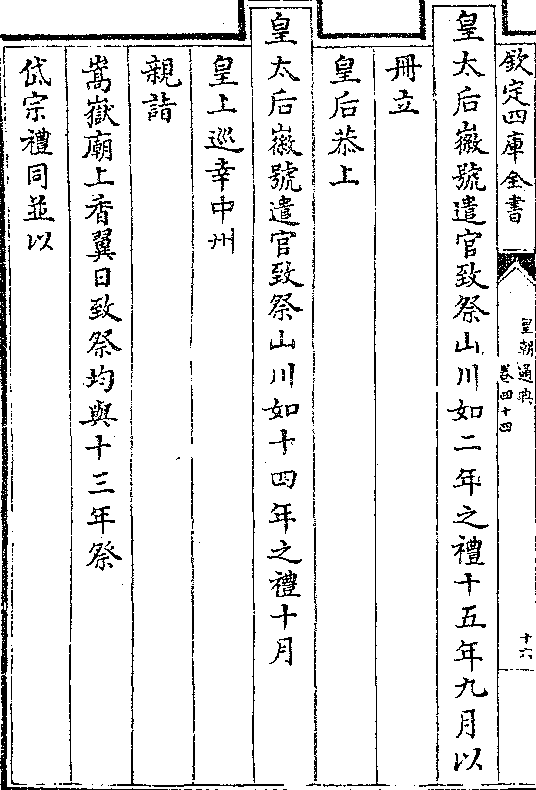 欽定四庫全書
皇朝通典
卷四十四
十六
皇太后徽號遣官致祭山川如二年之禮十五年九月以
冊立
皇后恭上
皇太后徽號遣官致祭山川如十四年之禮十月
皇上巡幸中州
親詣
嵩嶽廟上香翼日致祭均與十三年祭
岱宗禮同並以